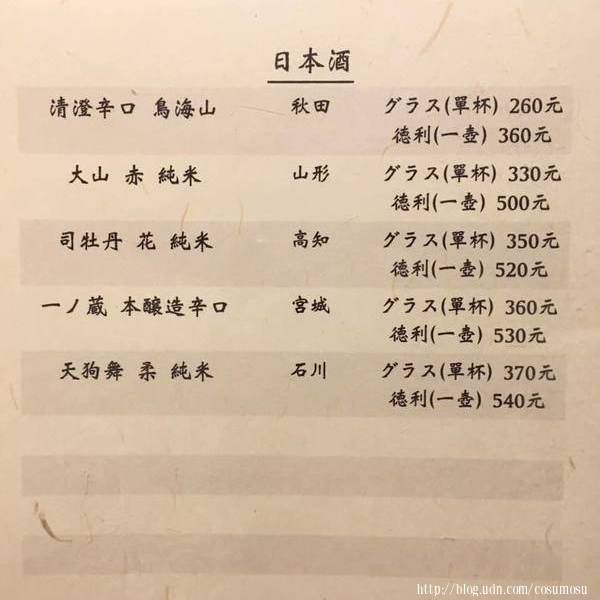 日本酒
清澄辛口 鳥海山 秋田 グラス(單杯) 260元
徳利(一壺) 360元
大山 赤 純米 山形 グラス(單杯) 330元
徳利(一壺) 500元
司牡丹 花 純米 高知 グラス(單杯) 350元
徳利(一壺) 520元
一ノ蔵 本醸造辛口 宮城 グラス(單杯) 360元
徳利(一壺) 530元
天狗舞 柔 純米 石川 グラス(單杯) 370元
徳利(一壺) 540元
http://blog.udn.com/cosumosu